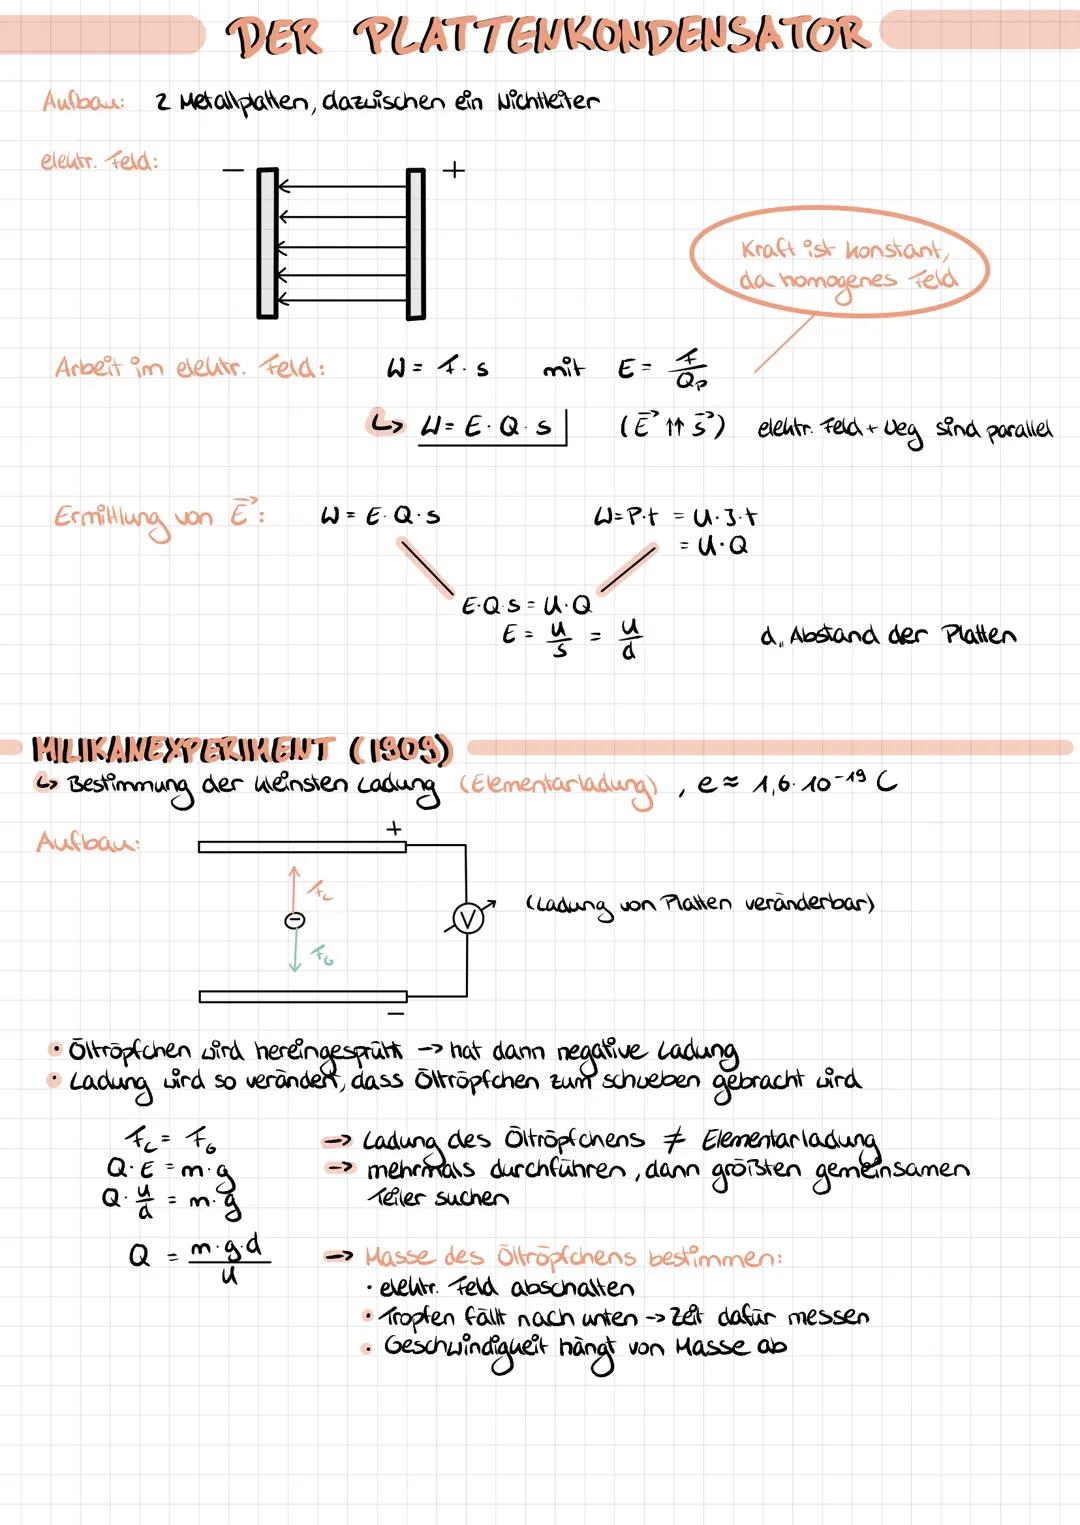 DER PLATTENKONDENSATOR
Aufbau: 2 Metallplatten, dazwischen ein Nichtleiter
elektr. Feld:
− +
Kraft ist konstant,
da homogenes Feld
Arbeit im elektr. Feld: W = F · s mit E = F/Qp
↳ W = E · Q · s (E⃗ ↑↑ s⃗) elektr. Feld + Weg sind parallel
Ermittlung von E⃗: W = E · Q · s W = P·t = U·I·t
= U·Q
E·Q·s = U·Q
E = U/s = U/d d „ Abstand der Platten
MILIKANEXPERIMENT (1909)
↳ Bestimmung der kleinsten Ladung (Elementarladung), e ≈ 1,6·10⁻¹⁹ C
Aufbau:
+
F_C
− V (Ladung von Platten veränderbar)
F_G
−
• Öltröpfchen wird hereingesprüht → hat dann negative Ladung
• Ladung wird so verändert, dass Öltröpfchen zum schweben gebracht wird
F_C = F_G → Ladung des Öltröpfchens ≠ Elementarladung
Q·E = m·g → mehrmals durchführen, dann größten gemeinsamen
Q·U/d = m·g Teiler suchen
Q = m·g·d/U → Masse des Öltröpfchens bestimmen:
• elektr. Feld abschalten
• Tropfen fällt nach unten → Zeit dafür messen
• Geschwindigkeit hängt von Masse ab